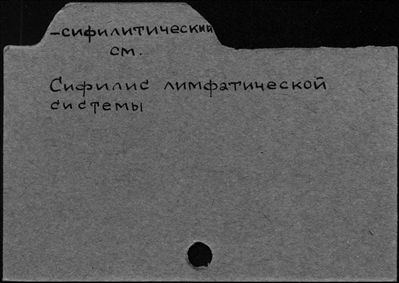 -сифилитический
см.
Сифилис лимфатической
системы